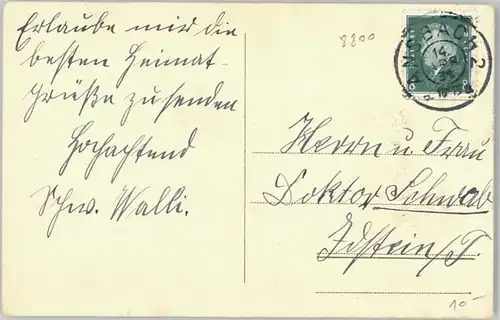 Erlaube mir die
besten Heimat-
grüße zu senden
Hochachtend
Schw. Walli.
8800
ANSBACH 2
14.
Herrn u. Frau
Doktor Schwab
Idstein/T.
10-